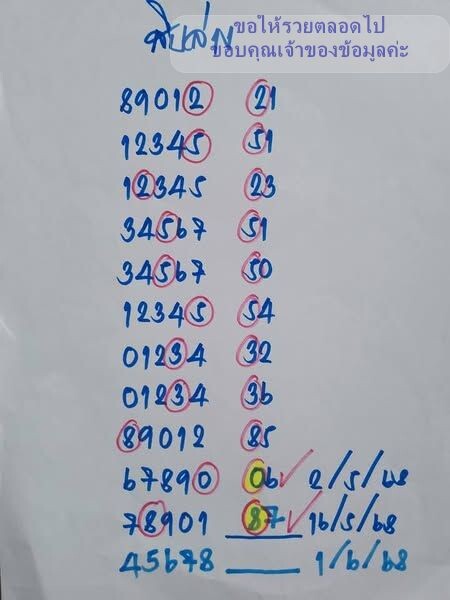 ขอให้รวยตลอดไป
ขอบคุณเจ้าของข้อมูลค่ะ
สิบล่าง
89012 21
12345 51
12345 23
34567 51
34567 50
12345 54
01234 32
01234 36
89012 85
67890 06 ✓ 2/5/68
78901 87 ✓ 16/5/68
45678 ___ 1/6/68